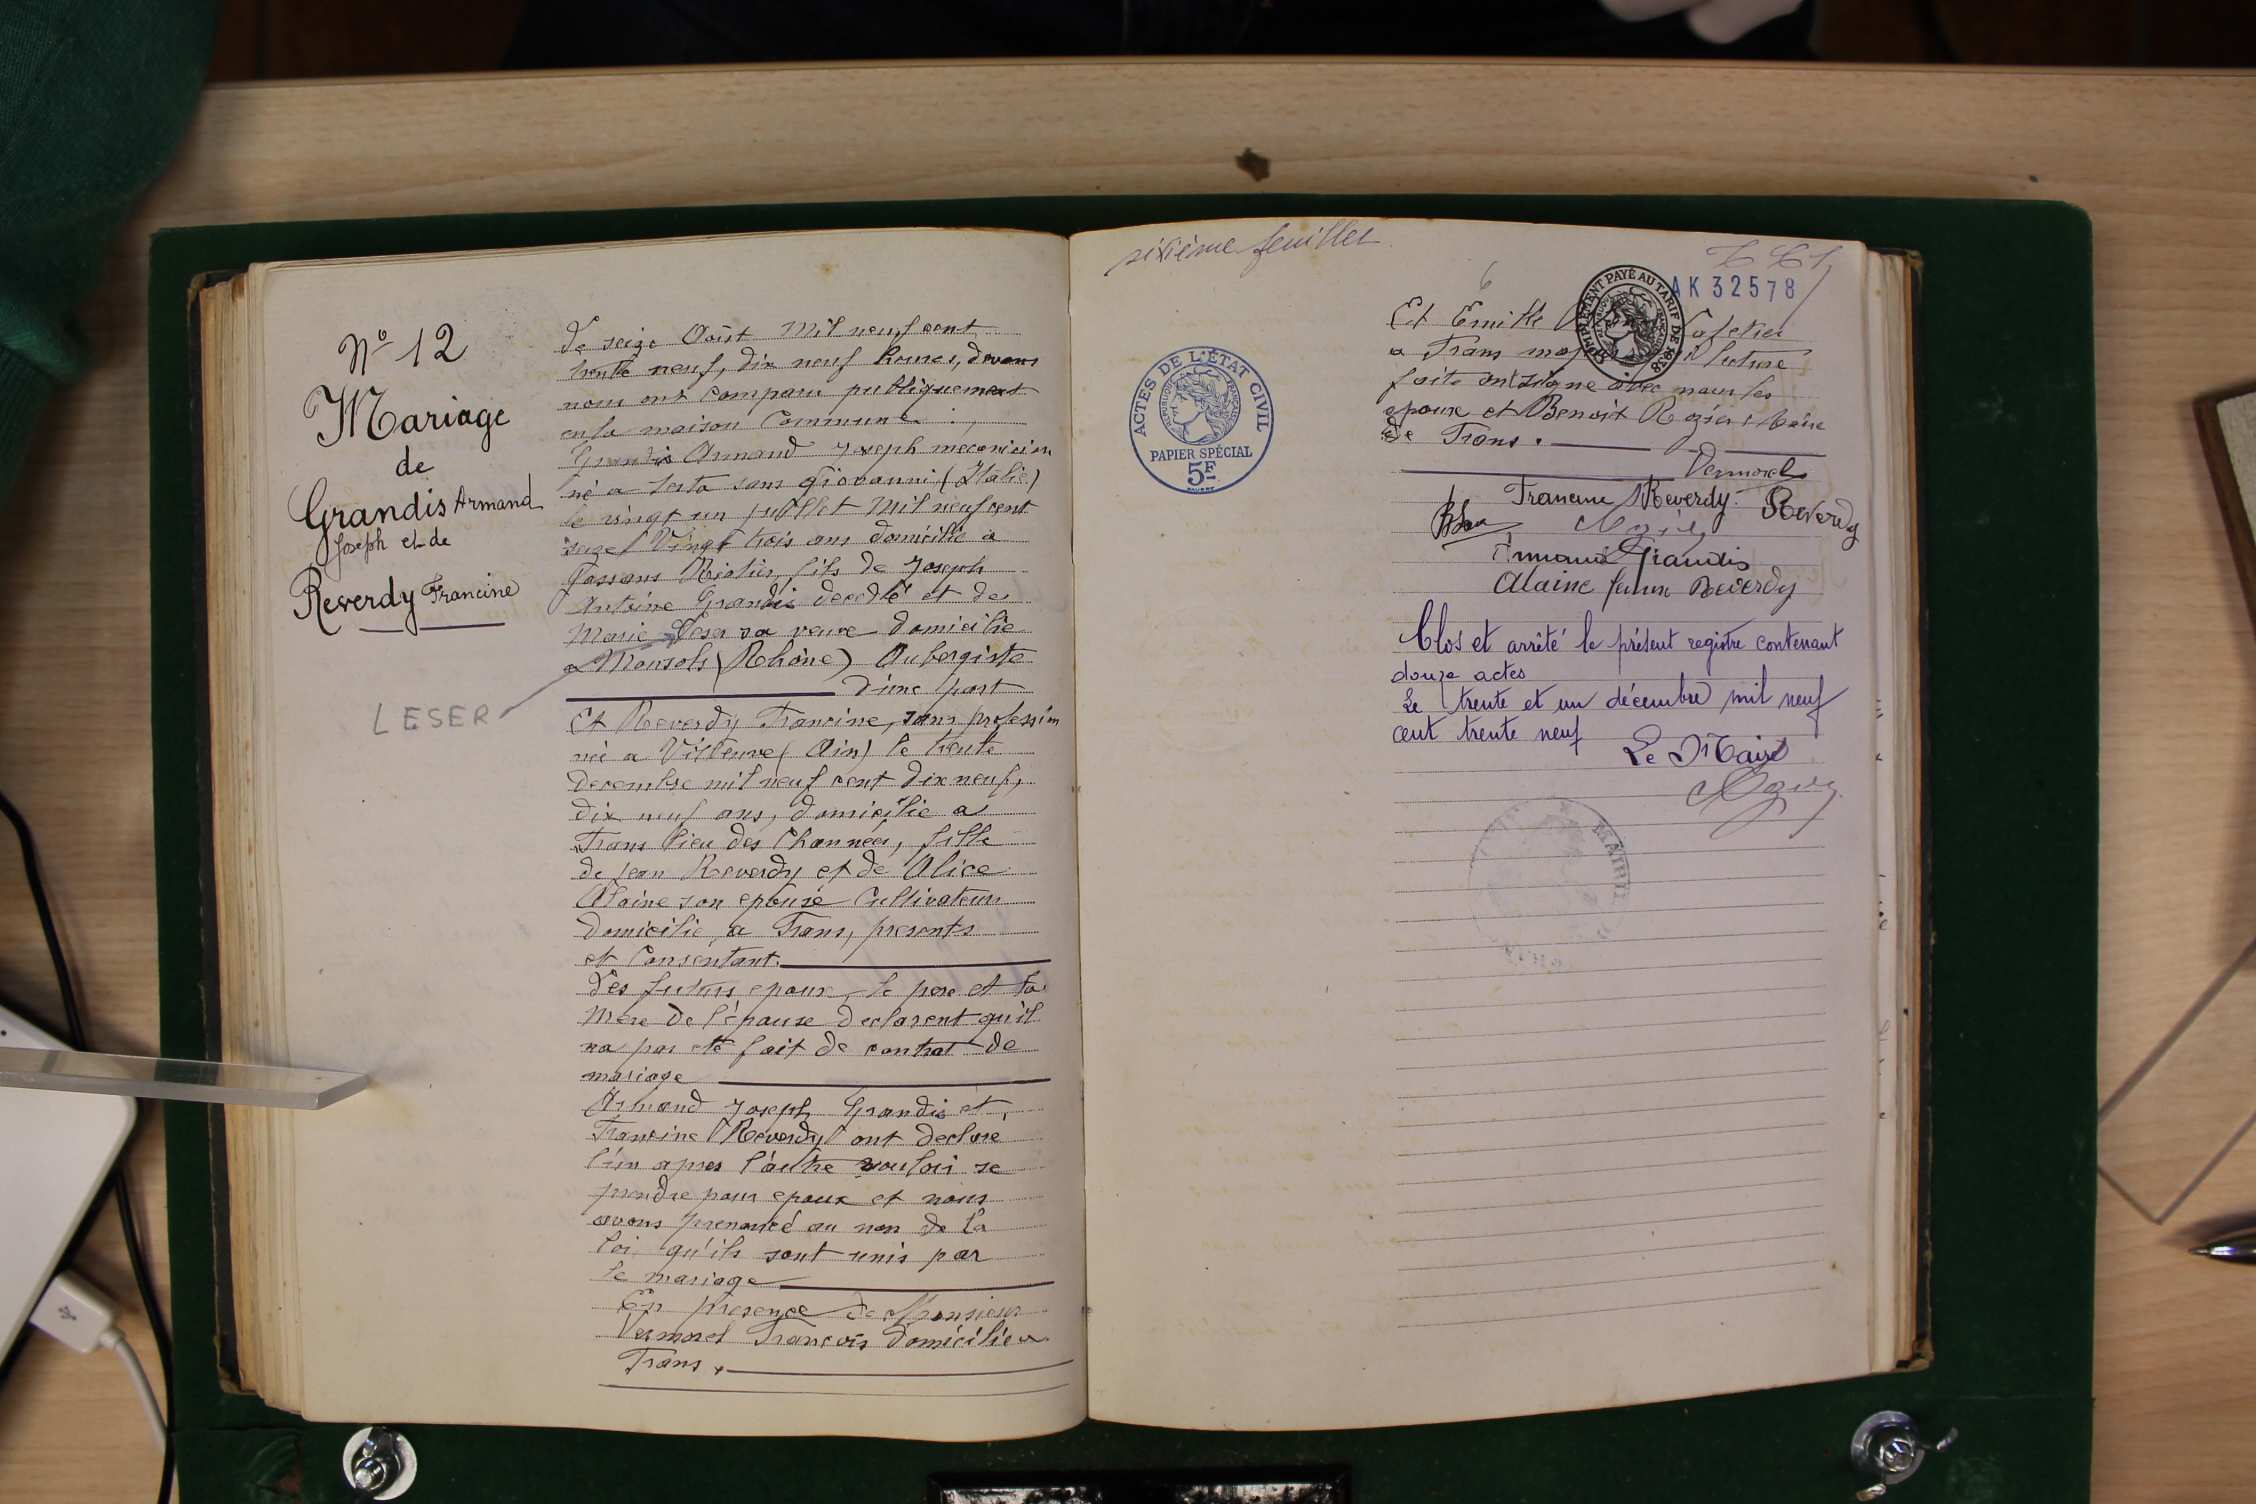 N° 12
Mariage
de
Grandis Armand
Joseph et de
Reverdy Francine
LESER
Le seize Août Mil neuf cent
trente neuf, dix neuf heures, devant
nous ont comparu publiquement
en la maison Commune
Grandis Armand Joseph mecanicien
né a Sesto sans Giovanni (Italie)
le vingt un juillet Mil neuf cent
seize Vingt trois ans domicilié a
fils de Joseph
Antoine Grandis decedé et de
Marie Leser sa veuve domicilie
a Monsols (Rhône) Aubergiste
d'une part
Et Reverdy Francine, sans profession
née a Villeneuve (Ain) le trente
decembre mil neuf cent dix neuf,
dix neuf ans, domicilie a
Trans lieu des Channées, fille
de Jean Reverdy et de Alice
Alaine son epouse Cultivateurs
domicilie a Trans, presents
et Consentant.
Les futurs epoux, le pere et la
Mere de l'épouse declarent qu'il
na pas eté fait de contrat de
mariage
Armand Joseph Grandis et
Francine Reverdy ont declaré
l'un apres l'autre vouloir se
prendre pour epoux et nous
avons prenoncé au nom de la
loi qu'ils sont unis par
le mariage
En presence de Monsieur
Vermorel François domicilie a
Trans.
sixième feuillet
ACTES DE L'ÉTAT CIVIL
RÉPUBLIQUE FRANÇAISE
PAPIER SPÉCIAL
5F
6
COMPLÉMENT PAYÉ AU TARIF DE 1938
AK 32578
Et Emille Cafetier
a Trans lecture
faite ont signe avec nous les
epoux et Benoit Rozier Maire
de Trans.
Vermorel
Francine Reverdy Reverdy
Armand Grandis
Alaine femme Reverdy
Clos et arrêté le présent registre contenant
douze actes
Le trente et un décembre mil neuf
cent trente neuf
Le Maire
MAIRIE